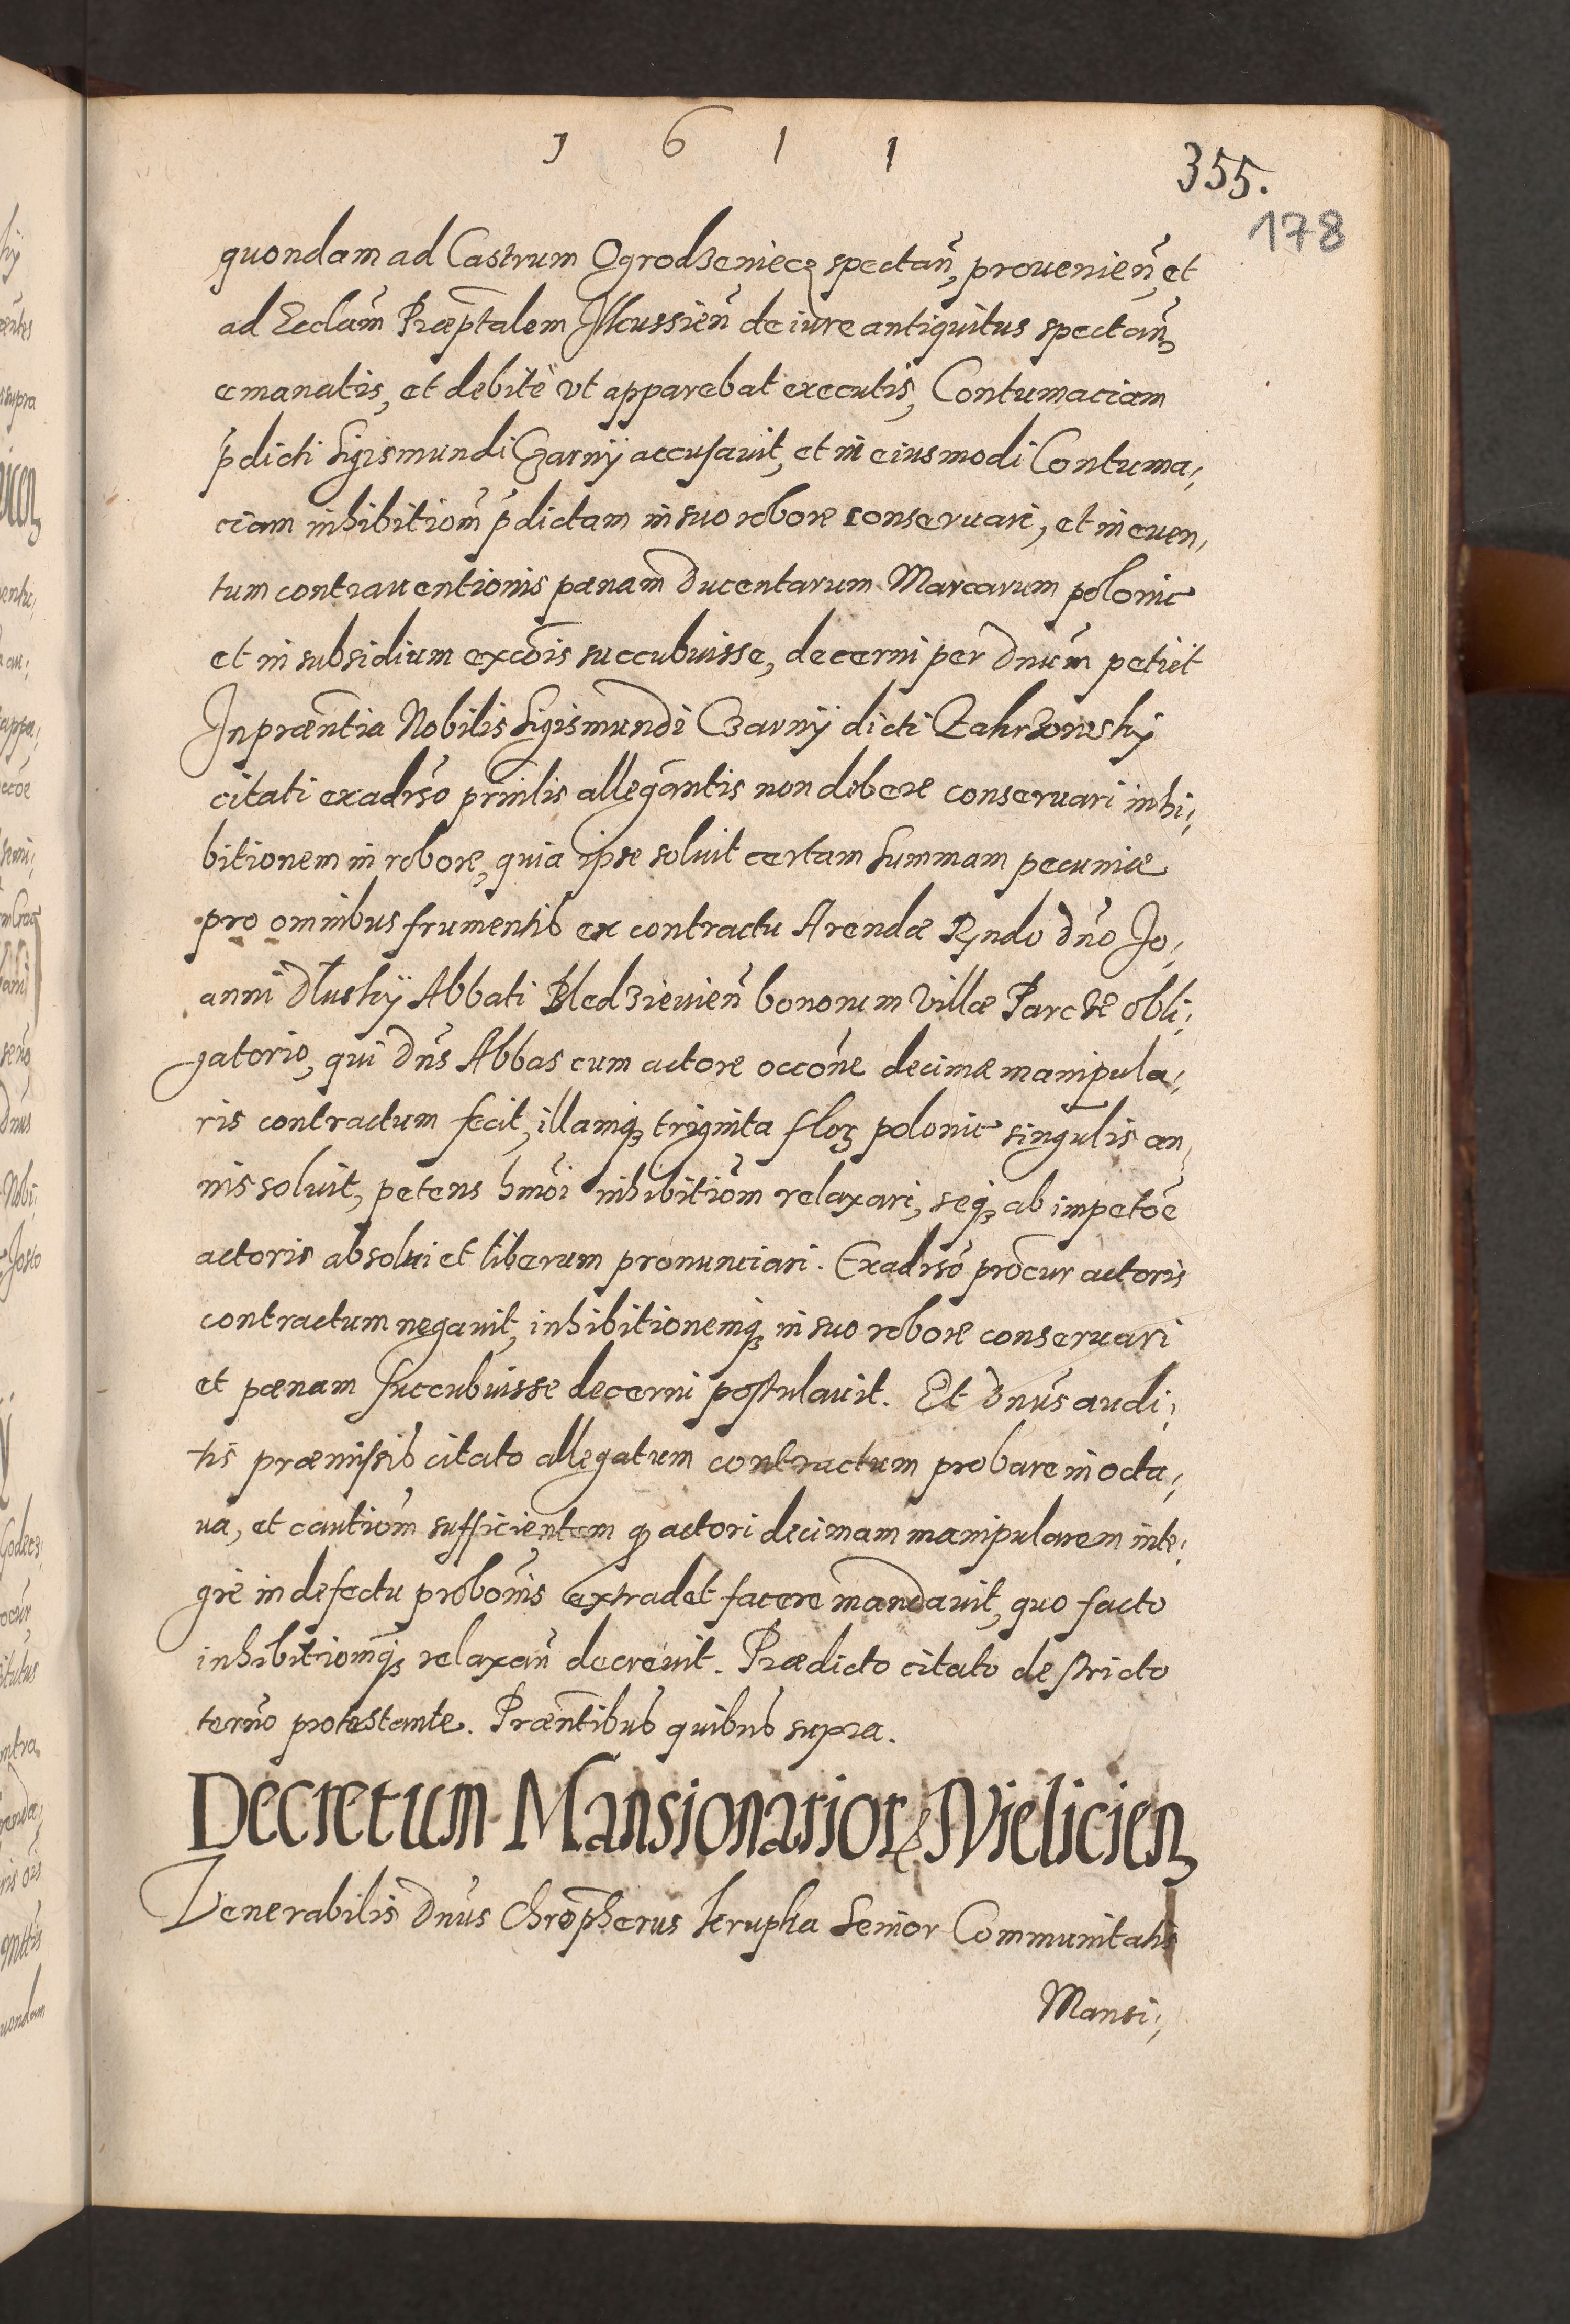 1 6 1 1
355.
178
quondam ad Castrum Ogrodzeniecz spectan̄, provenien̄, et
ad Eccl̄am Præp̄talem Ilcussien̄ de iure antiquitus spectan̄,
emanatis, et debitè vt apparebat executis, Contumaciam
p̄dicti Sigismundi Czarnÿ accusauit, et in eiusmodi Contuma,
ciam inhibitiōm p̄dictam in suo robore conseruari, et in euen,
tum contrauentionis pœnam ducentarum Marcarum polonic
et in subsidium excōis succubuisse, decerni per Dnūm petiit
In præn̄tia Nobilis Sigismundi Czarnÿ dicti
citati exadrsō prinīlis allegantis non debere conseruari inhi;
bitionem in robore, quia ipse soluit certam summam pecuniæ
pro omnibus frumentis ex contractu Arendæ Rndo dn̄o Jo;
anni Dłuskÿ Abbati Bledzieuien̄ bonorum Villæ Parcze obli;
gatorio, qui Dn̄s Abbas cum actore occōne decimæ manipula;
ris contractum fecit, illamq3 triginta flor3 polonic singulis an,
nis soluit, petens hmōi inhibitiōm relaxari, seq3 ab impetōe
actoris absolui et liberum pronunciari. Exadrsō prōcur actoris
contractum negauit, inhibitionemq3 in suo robore conseruari
et pœnam succubuisse decerni postulauit. Et Dnūs audi;
tis præmissis citato allegatum contractum probare in octa;
ua, et cautiōm sufficientem q̄ actori decimam manipularem inte;
grè in defectu probōnis extradet facere mandauit, quo facto
inhibitiōmq3 relaxan̄ decreuit. Prædicto citato de stricto
term̄o protestante. Præn̄tibus quibus supra.
Decretum Mansionarior̨ Wielicien̄
Venerabilis Dnūs Chrōpherus Krupka Senior Communitatis
Mansi;